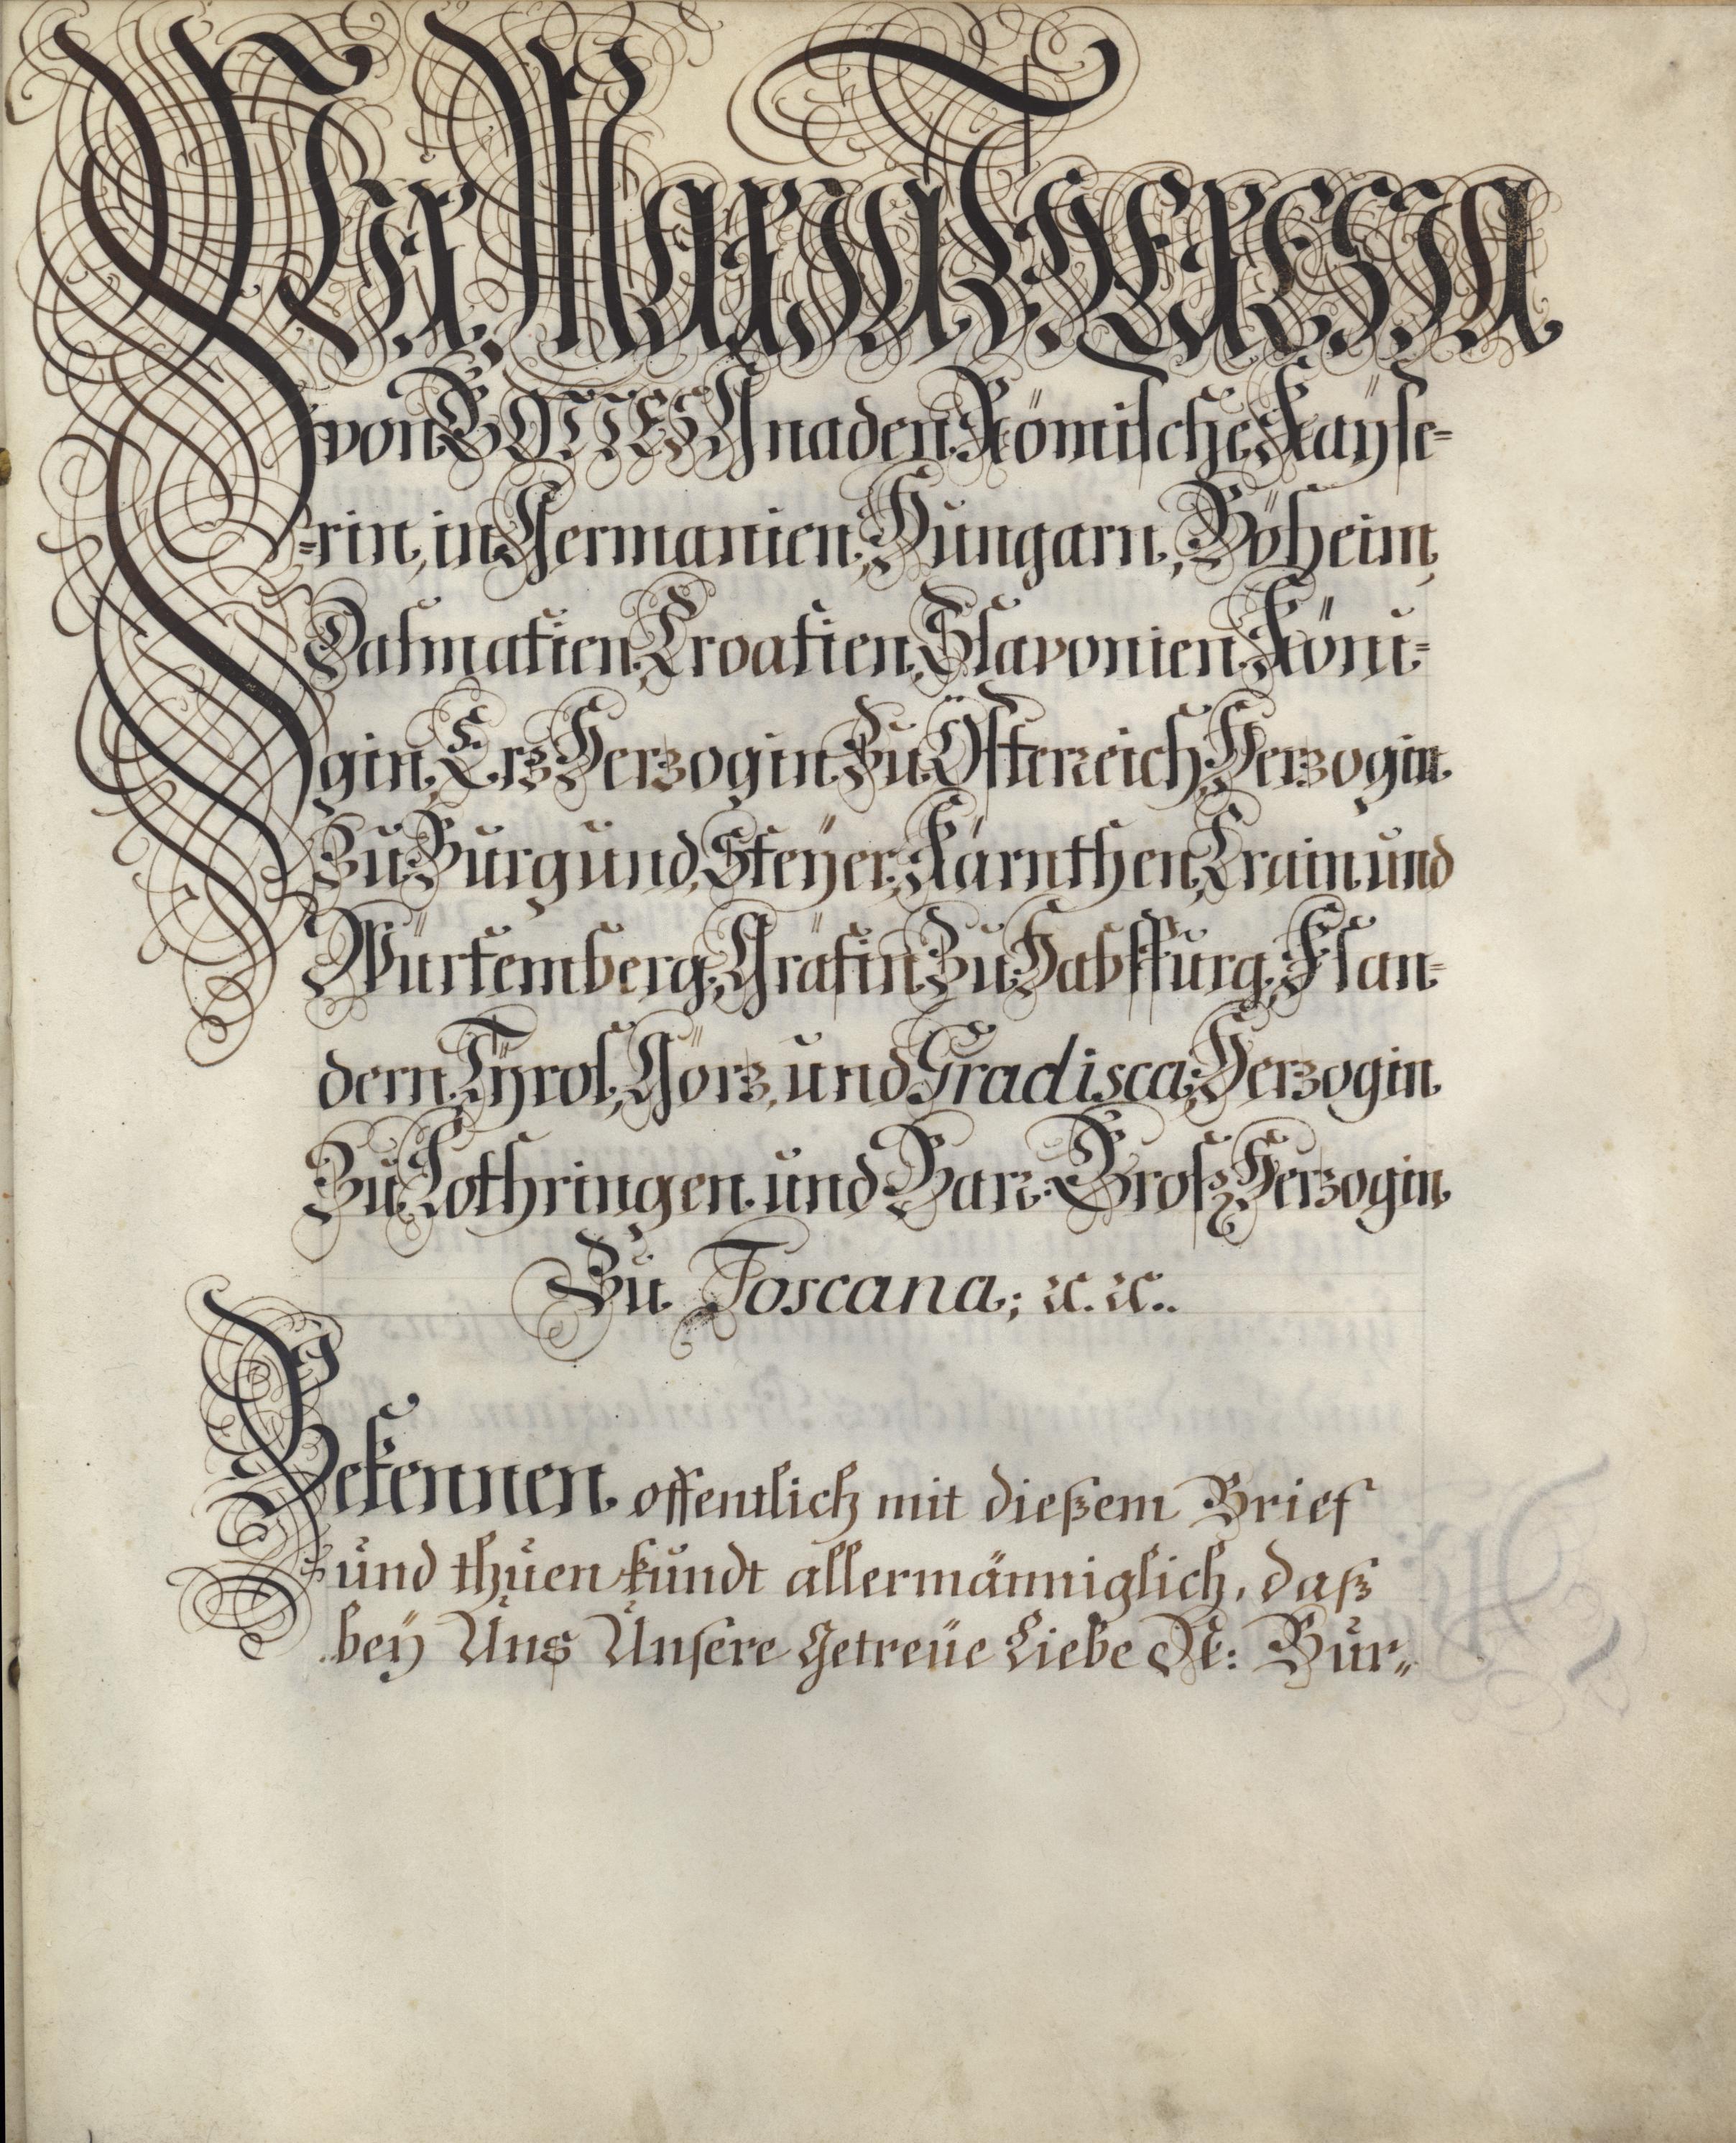 Wir Maria Theresia
von GOTTES Gnaden Römische Kaÿse=
=rin, in Germanien, Hungarn, Böheim,
Dalmatien, Croatien, Slavonien Köni=
gin, Erz Herzogin Zu Österreich, Herzogin
Zu Burgund, Steÿer, Kärnthen, Crain und
Würtemberg, Gräfin Zu Habspurg, Flan=
dern, Tÿrol, Görz, und Gradisca; Herzogin
Zu Lothringen und Barr: Groß Herzogin
Zu Toscana; ꝛc. ꝛc..
Bekennen offentlich mit dießem Brief
und thuen kundt allermänniglich, daß
beÿ Uns Unsere Getreüe Liebe N: Bur„